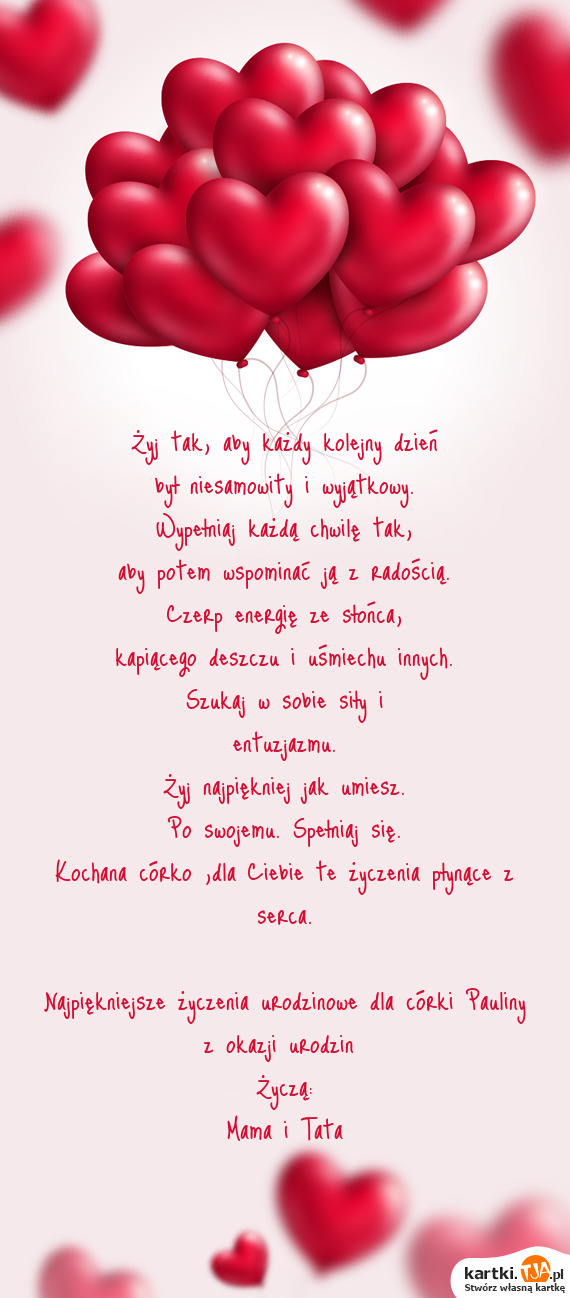 Żyj tak, aby każdy kolejny dzień
był niesamowity i wyjątkowy.
Wypełniaj każdą chwilę tak,
aby potem wspominać ją z radością.
Czerp energię ze słońca,
kapiącego deszczu i uśmiechu innych.
Szukaj w sobie siły i
entuzjazmu.
Żyj najpiękniej jak umiesz.
Po swojemu. Spełniaj się.
Kochana córko ,dla Ciebie te życzenia płynące z
serca.
Najpiękniejsze życzenia urodzinowe dla córki Pauliny
z okazji urodzin
Życzą:
Mama i Tata
kartki.TJA.pl
Stwórz własną kartkę